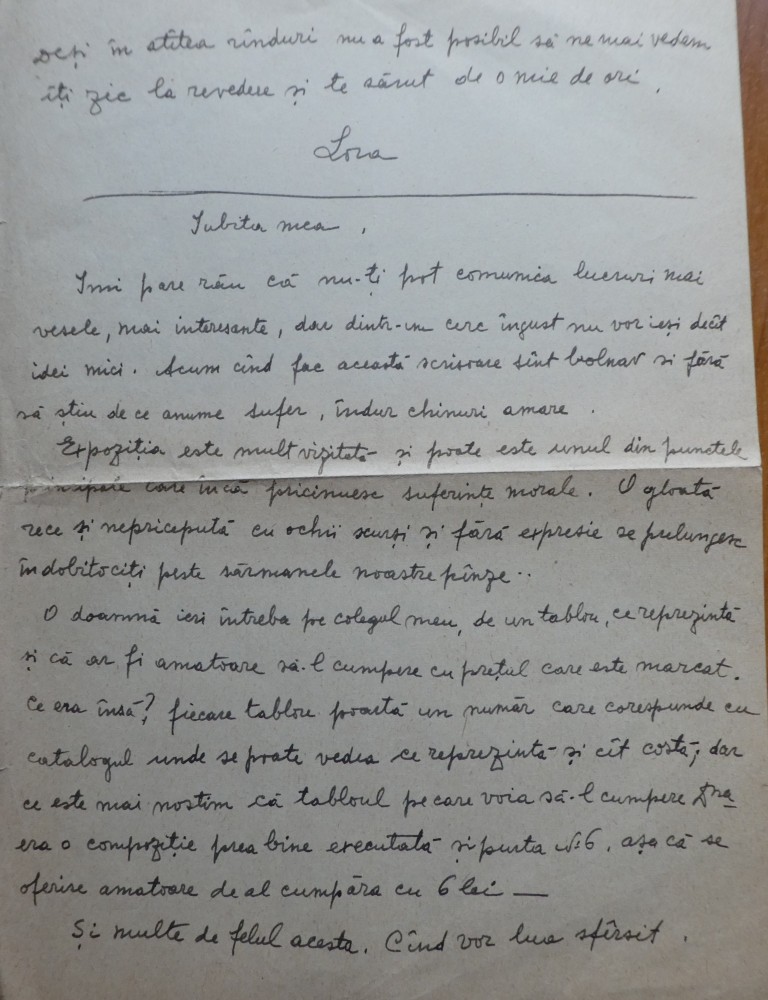 Deși în atîtea rînduri nu a fost posibil să ne mai vedem
îți zic la revedere și te sărut de o mie de ori.
Lora
Iubita mea,
Imi pare rău că nu-ți pot comunica lucruri mai
vesele, mai interesante, dar dintr-un cerc îngust nu vor ieși decît
idei mici. Acum cînd fac această scrisoare sînt bolnav si fără
să știu de ce anume sufer, îndur chinuri amare.
Expoziția este mult vizitată și poate este unul din punctele
principale care încă pricinuesc suferințe morale. O gloată
rece și nepricepută cu ochii scurși și fără expresie se prelungesc
îndobitociți peste sărmanele noastre pînze..
O doamnă ieri întreba pe colegul meu, de un tablou, ce reprezintă
și că ar fi amatoare să-l cumpere cu prețul care este marcat.
Ce era însă? fiecare tablou poartă un număr care corespunde cu
catalogul unde se poate vedea ce reprezintă și cît costă; dar
ce este mai nostim că tabloul pe care voia să-l cumpere Dna
era o compoziție prea bine executată și purta No 6, așa că se
oferise amatoare de al cumpăra cu 6 lei —
Și multe de felul acesta. Cînd vor lua sfîrsit.